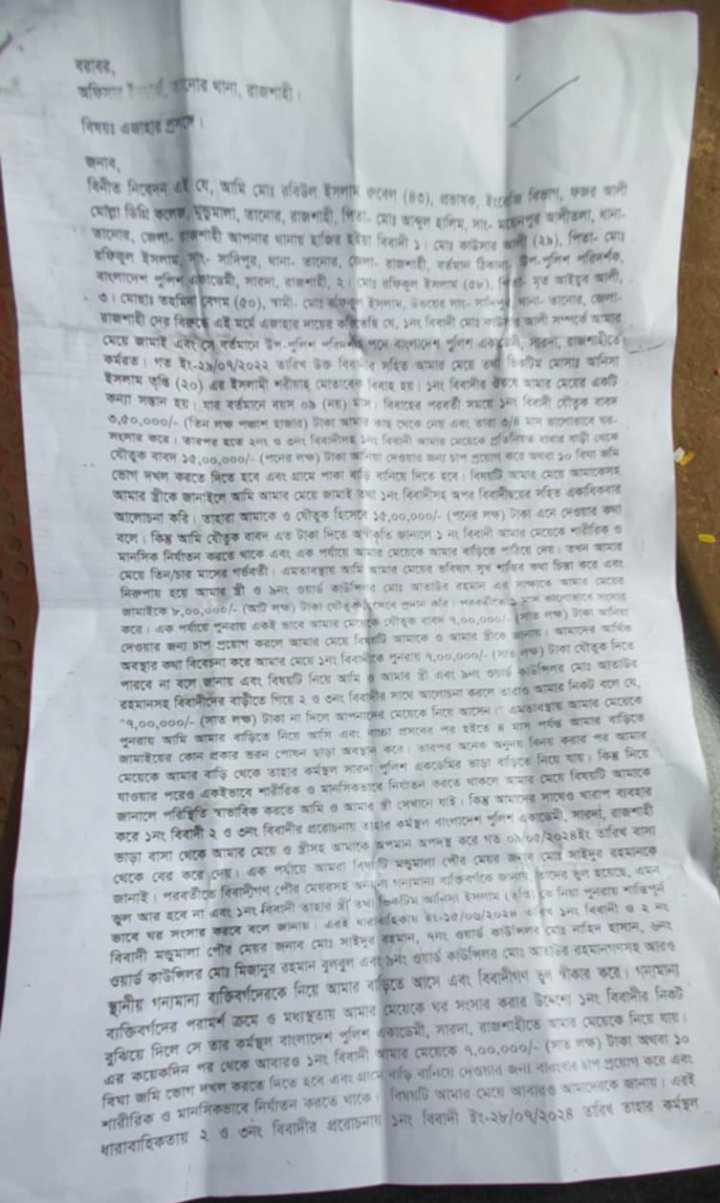 বরাবর,
অফিসার থানা, রাজশাহী।
বিষয়ঃ এজাহার প্রসঙ্গে।
জনাব,
বিনীত নিবেদন এই যে, আমি মোঃ রবিউল ইসলাম রুবেল (৪৩), প্রভাষক, ইংরেজি বিভাগ, ফজর আলী
মোল্লা ডিগ্রি কলেজ, মুন্ডুমালা, তানোর, রাজশাহী, পিতা- মোঃ আব্দুল হালিম, সাং- ময়েনপুর আলীতলা, থানা-
তানোর, জেলা- রাজশাহী আপনার থানায় হাজির হইয়া বিবাদী ১। মোঃ কাউসার আলী (২৯), পিতা- মোঃ
রফিকুল ইসলাম, সাং- সাদিপুর, থানা- তানোর, জেলা- রাজশাহী, বর্তমান ঠিকানা উপ-পুলিশ পরিদর্শক,
বাংলাদেশ পুলিশ একাডেমী, সারদা, রাজশাহী, ২। মোঃ রফিকুল ইসলাম (৫৮), পিতা- মৃত আইয়ুব আলী,
৩। মোছাঃ তহমিনা বেগম (৫০), স্বামী- মোঃ রফিকুল ইসলাম, উভয়ের সাং- সাদিপুর থানা- তানোর, জেলা-
রাজশাহী দের বিরুদ্ধে এই মর্মে এজাহার দায়ের করিতেছি যে, ১নং বিবাদী মোঃ কাউসার আলী সম্পর্কে আমার
মেয়ে জামাই এবং সে বর্তমানে উপ-পুলিশ পরিদর্শক পদে বাংলাদেশ পুলিশ একাডেমী, সারদা, রাজশাহীতে
কর্মরত। গত ইং-২৯/০৭/২০২২ তারিখ উক্ত বিবাদীর সহিত আমার মেয়ে তথা ভিকটিম মোসাঃ আনিসা
ইসলাম তৃপ্তি (২০) এর ইসলামী শরীয়াহ মোতাবেক বিবাহ হয়। ১নং বিবাদীর ঔরষে আমার মেয়ের একটি
কন্যা সন্তান হয়। যার বর্তমানে বয়স ০৯ (নয়) মাস। বিবাহের পরবর্তী সময়ে ১নং বিবাদী যৌতুক বাবদ
৩,৫০,০০০/- (তিন লক্ষ পঞ্চাশ হাজার) টাকা আমার কাছ থেকে নেয় এবং তারা ৩/৪ মাস ভালোভাবে ঘর-
সংসার করে। তারপর হতে ২নং ও ৩নং বিবাদীসহ ১নং বিবাদী আমার মেয়েকে প্রতিনিয়ত বাবার বাড়ী থেকে
যৌতুক বাবদ ১৫,০০,০০০/- (পনের লক্ষ) টাকা আনিয়া দেওয়ার জন্য চাপ প্রয়োগ করে অথবা ১০ বিঘা জমি
ভোগ দখল করতে দিতে হবে এবং গ্রামে পাকা বাড়ি বানিয়ে দিতে হবে। বিষয়টি আমার মেয়ে আমাকেসহ
আমার স্ত্রীকে জানাইলে আমি আমার মেয়ে জামাই তথা ১নং বিবাদীসহ অপর বিবাদীদ্বয়ের সহিত একাধিকবার
আলোচনা করি। তাহারা আমাকে ও যৌতুক হিসেবে ১৫,০০,০০০/- (পনের লক্ষ) টাকা এনে দেওয়ার কথা
বলে। কিন্তু আমি যৌতুক বাবদ এত টাকা দিতে অস্বীকৃতি জানালে ১ নং বিবাদী আমার মেয়েকে শারীরিক ও
মানসিক নির্যাতন করতে থাকে এবং এক পর্যায়ে আমার মেয়েকে আমার বাড়িতে পাঠিয়ে দেয়। তখন আমার
মেয়ে তিন/চার মাসের গর্ভবতী। এমতাবস্থায় আমি আমার মেয়ের ভবিষ্যৎ সুখ শান্তির কথা চিন্তা করে এবং
নিরুপায় হয়ে আমার স্ত্রী ও ৯নং ওয়ার্ড কাউন্সিলর মোঃ আতাউর রহমান এর সাক্ষাতে আমার মেয়ের
জামাইকে ৮,০০,০০০/- (আট লক্ষ) টাকা যৌতুক হিসেবে প্রদান করি। পরবর্তীতে মাস ভালোভাবে সংসার
করে। এক পর্যায়ে পুনরায় একই ভাবে আমার মেয়েকে যৌতুক বাবদ ৭,০০,০০০/- (সাত লক্ষ) টাকা আনিয়া
দেওয়ার জন্য চাপ প্রয়োগ করলে আমার মেয়ে বিষয়টি আমাকে ও আমার স্ত্রীকে জানায়। আমাদের আর্থিক
অবস্থার কথা বিবেচনা করে আমার মেয়ে ১নং বিবাদীকে পুনরায় ৭,০০,০০০/- (সাত লক্ষ) টাকা যৌতুক দিতে
পারবে না বলে জানায় এবং বিষয়টি নিয়ে আমি ও আমার স্ত্রী এবং ৯নং ওয়ার্ড কাউন্সিলর মোঃ আতাউর
রহমানসহ বিবাদীদের বাড়ীতে গিয়ে ২ ও ৩নং বিবাদীর সাথে আলোচনা করলে তারাও আমার নিকট বলে যে,
"৭,০০,০০০/- (সাত লক্ষ) টাকা না দিলে আপনাদের মেয়েকে নিয়ে আসেন।" এমতাবস্থায় আমার মেয়েকে
পুনরায় আমি আমার বাড়িতে নিয়ে আসি এবং বাচ্চা প্রসবের পর হইতে ৪ মাস পর্যন্ত আমার বাড়িতে
জামাইয়ের কোন প্রকার ভরন পোষন ছাড়া অবস্থান করে। তারপর অনেক অনুনয় বিনয় করার পর আমার
মেয়েকে আমার বাড়ি থেকে তাহার কর্মস্থল সারদা পুলিশ একাডেমির ভাড়া বাড়িতে নিয়ে যায়। কিন্তু নিয়ে
যাওয়ার পরেও একইভাবে শারীরিক ও মানসিকভাবে নির্যাতন করতে থাকলে আমার মেয়ে বিষয়টি আমাকে
জানালে পরিস্থিতি স্বাভাবিক করতে আমি ও আমার স্ত্রী সেখানে যাই। কিন্তু আমাদের সাথেও খারাপ ব্যবহার
করে ১নং বিবাদী ২ ও ৩নং বিবাদীর প্ররোচনায় তাহার কর্মস্থল বাংলাদেশ পুলিশ একাডেমী, সারদা, রাজশাহী
ভাড়া বাসা থেকে আমার মেয়ে ও স্ত্রীসহ আমাকে অপমান অপদস্থ করে গত ০৯/০৫/২০২৪ইং তারিখ বাসা
থেকে বের করে দেয়। এক পর্যায়ে আমরা বিষয়টি মন্ডুমালা পৌর মেয়র জনাব মোঃ সাইদুর রহমানকে
জানাই। পরবর্তীতে বিবাদীগণ পৌর মেয়রসহ অনান্য গন্যমান্য ব্যক্তিবর্গকে জানায় তাদের ভুল হয়েছে, এমন
ভুল আর হবে না এবং ১নং বিবাদী তাহার স্ত্রী তথা ভিকটিম আনিসা ইসলাম (তৃপ্তি)কে নিয়া পুনরায় শান্তিপূর্ন
ভাবে ঘর সংসার করবে বলে জানায়। এরই ধারাবাহিকতায় ইং-১৫/০৬/২০২৪ তারিখ ১নং বিবাদী ও ২ নং
বিবাদী মন্ডুমালা পৌর মেয়র জনাব মোঃ সাইদুর রহমান, ৭নং ওয়ার্ড কাউন্সিলর মোঃ নাহিদ হাসান, ৬নং
ওয়ার্ড কাউন্সিলর মোঃ মিজানুর রহমান বুলবুল এবং ৯নং ওয়ার্ড কাউন্সিলর মোঃ আতাউর রহমানগণসহ আরও
স্থানীয় গন্যমান্য ব্যক্তিবর্গদেরকে নিয়ে আমার বাড়িতে আসে এবং বিবাদীগণ ভুল স্বীকার করে। গন্যমান্য
ব্যক্তিবর্গদের পরামর্শ ক্রমে ও মধ্যস্থতায় আমার মেয়েকে ঘর সংসার করার উদ্দেশ্যে ১নং বিবাদীর নিকট
বুঝিয়ে দিলে সে তার কর্মস্থল বাংলাদেশ পুলিশ একাডেমী, সারদা, রাজশাহীতে আমার মেয়েকে নিয়ে যায়।
এর কয়েকদিন পর থেকে আবারও ১নং বিবাদী আমার মেয়েকে ৭,০০,০০০/- (সাত লক্ষ) টাকা অথবা ১০
বিঘা জমি ভোগ দখল করতে দিতে হবে এবং গ্রামে বাড়ি বানিয়ে দেওয়ার জন্য বারংবার চাপ প্রয়োগ করে এবং
শারীরিক ও মানসিকভাবে নির্যাতন করতে থাকে। বিষয়টি আমার মেয়ে আবারও আমাদেরকে জানায়। এরই
ধারাবাহিকতায় ২ ও ৩নং বিবাদীর প্ররোচনায় ১নং বিবাদী ইং-২৮/০৭/২০২৪ তারিখ তাহার কর্মস্থল